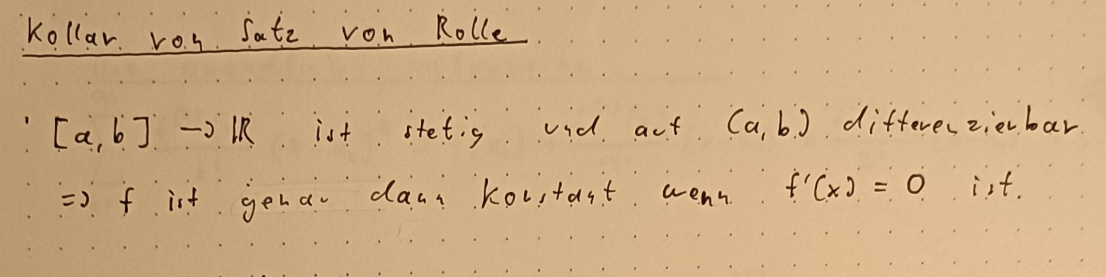 Kollar von Satz von Rolle
[a,b] → ℝ ist stetig und auf (a,b) differenzierbar
=> f ist genau dann konstant wenn f'(x) = 0 ist.